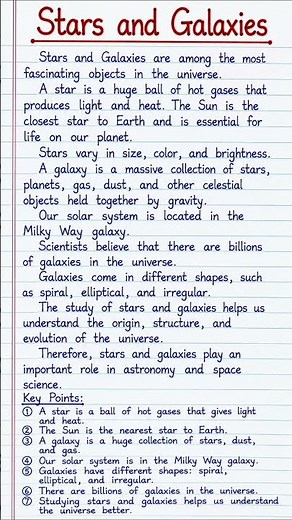 Stars and Galaxies
Stars and Galaxies are among the most
fascinating objects in the universe.
A star is a huge ball of hot gases that
produces light and heat. The Sun is the
closest star to Earth and is essential for
life on our planet.
Stars vary in size, color, and brightness.
A galaxy is a massive collection of stars,
planets, gas, dust, and other celestial
objects held together by gravity.
Our solar system is located in the
Milky Way galaxy.
Scientists believe that there are billions
of galaxies in the universe.
Galaxies come in different shapes, such
as spiral, elliptical, and irregular.
The study of stars and galaxies helps us
understand the origin, structure, and
evolution of the universe.
Therefore, stars and galaxies play an
important role in astronomy and space
science.
Key Points:
① A star is a ball of hot gases that gives light
and heat.
② The Sun is the nearest star to Earth.
③ A galaxy is a huge collection of stars, dust,
and gas.
④ Our solar system is in the Milky Way galaxy.
⑤ Galaxies have different shapes: spiral,
elliptical, and irregular.
⑥ There are billions of galaxies in the universe.
⑦ Studying stars and galaxies helps us understand
the universe better.